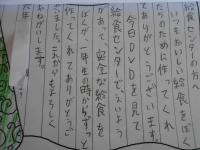 給食センターの方へ
いつもおいしい給食をぼく
たちのために作ってくれ
てありがとうございます。
今日DVDを見て
給食センターで
があって安全な給食を
ぼくが一年生の時からずっと
作ってくれてありがとうご
ざいました。これからもよろしく
おねがいします。